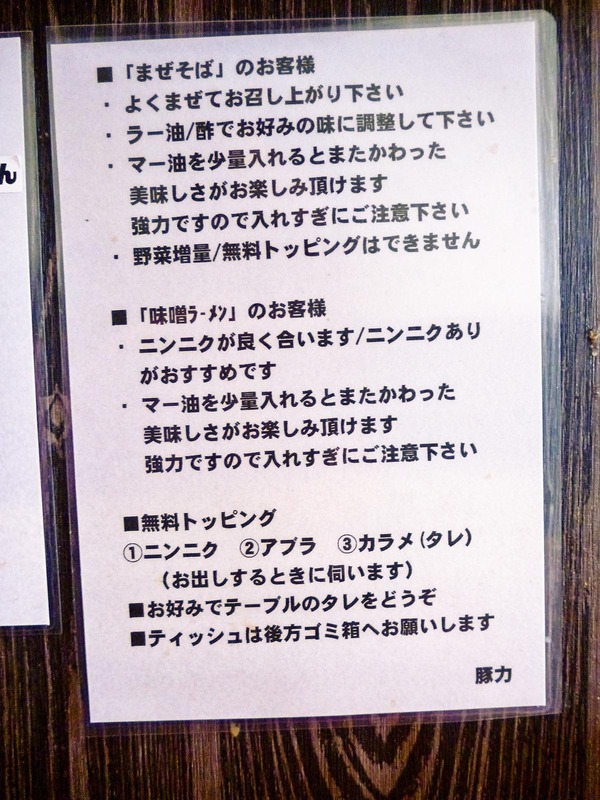 ん
■「まぜそば」のお客様
・よくまぜてお召し上がり下さい
・ラー油/酢でお好みの味に調整して下さい
・マー油を少量入れるとまたかわった
美味しさがお楽しみ頂けます
強力ですので入れすぎにご注意下さい
・野菜増量/無料トッピングはできません
■「味噌ﾗｰﾒﾝ」のお客様
・ニンニクが良く合います/ニンニクあり
がおすすめです
・マー油を少量入れるとまたかわった
美味しさがお楽しみ頂けます
強力ですので入れすぎにご注意下さい
■無料トッピング
①ニンニク ②アブラ ③カラメ(タレ)
(お出しするときに伺います)
■お好みでテーブルのタレをどうぞ
■ティッシュは後方ゴミ箱へお願いします
豚力